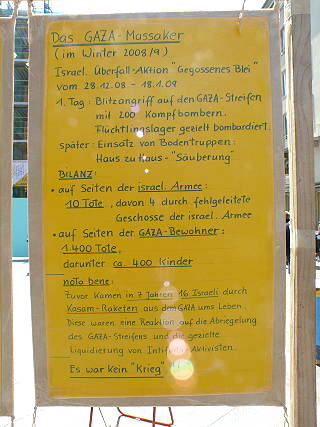 Das GAZA-Massaker
(im Winter 2008/9)
Israel. Überfall-Aktion "Gegossenes Blei"
vom 28.12.08 - 18.1.09
1. Tag: Blitzangriff auf den GAZA-Streifen
mit 200 Kampfbombern.
Flüchtlingslager gezielt bombardiert.
später: Einsatz von Bodentruppen:
Haus zu Haus-"Säuberung"
BILANZ:
• auf Seiten der israel. Armee:
10 Tote, davon 4 durch fehlgeleitete
Geschosse der israel. Armee
• auf Seiten der GAZA-Bewohner:
1.400 Tote,
darunter ca. 400 Kinder
nota bene:
Zuvor kamen in 7 Jahren 16 Israeli durch
Kasam-Raketen aus dem GAZA ums Leben.
Diese waren eine Reaktion auf die Abriegelung
des GAZA-Streifens und die gezielte
Liquidierung von Intifada-Aktivisten.
Es war kein "Krieg"